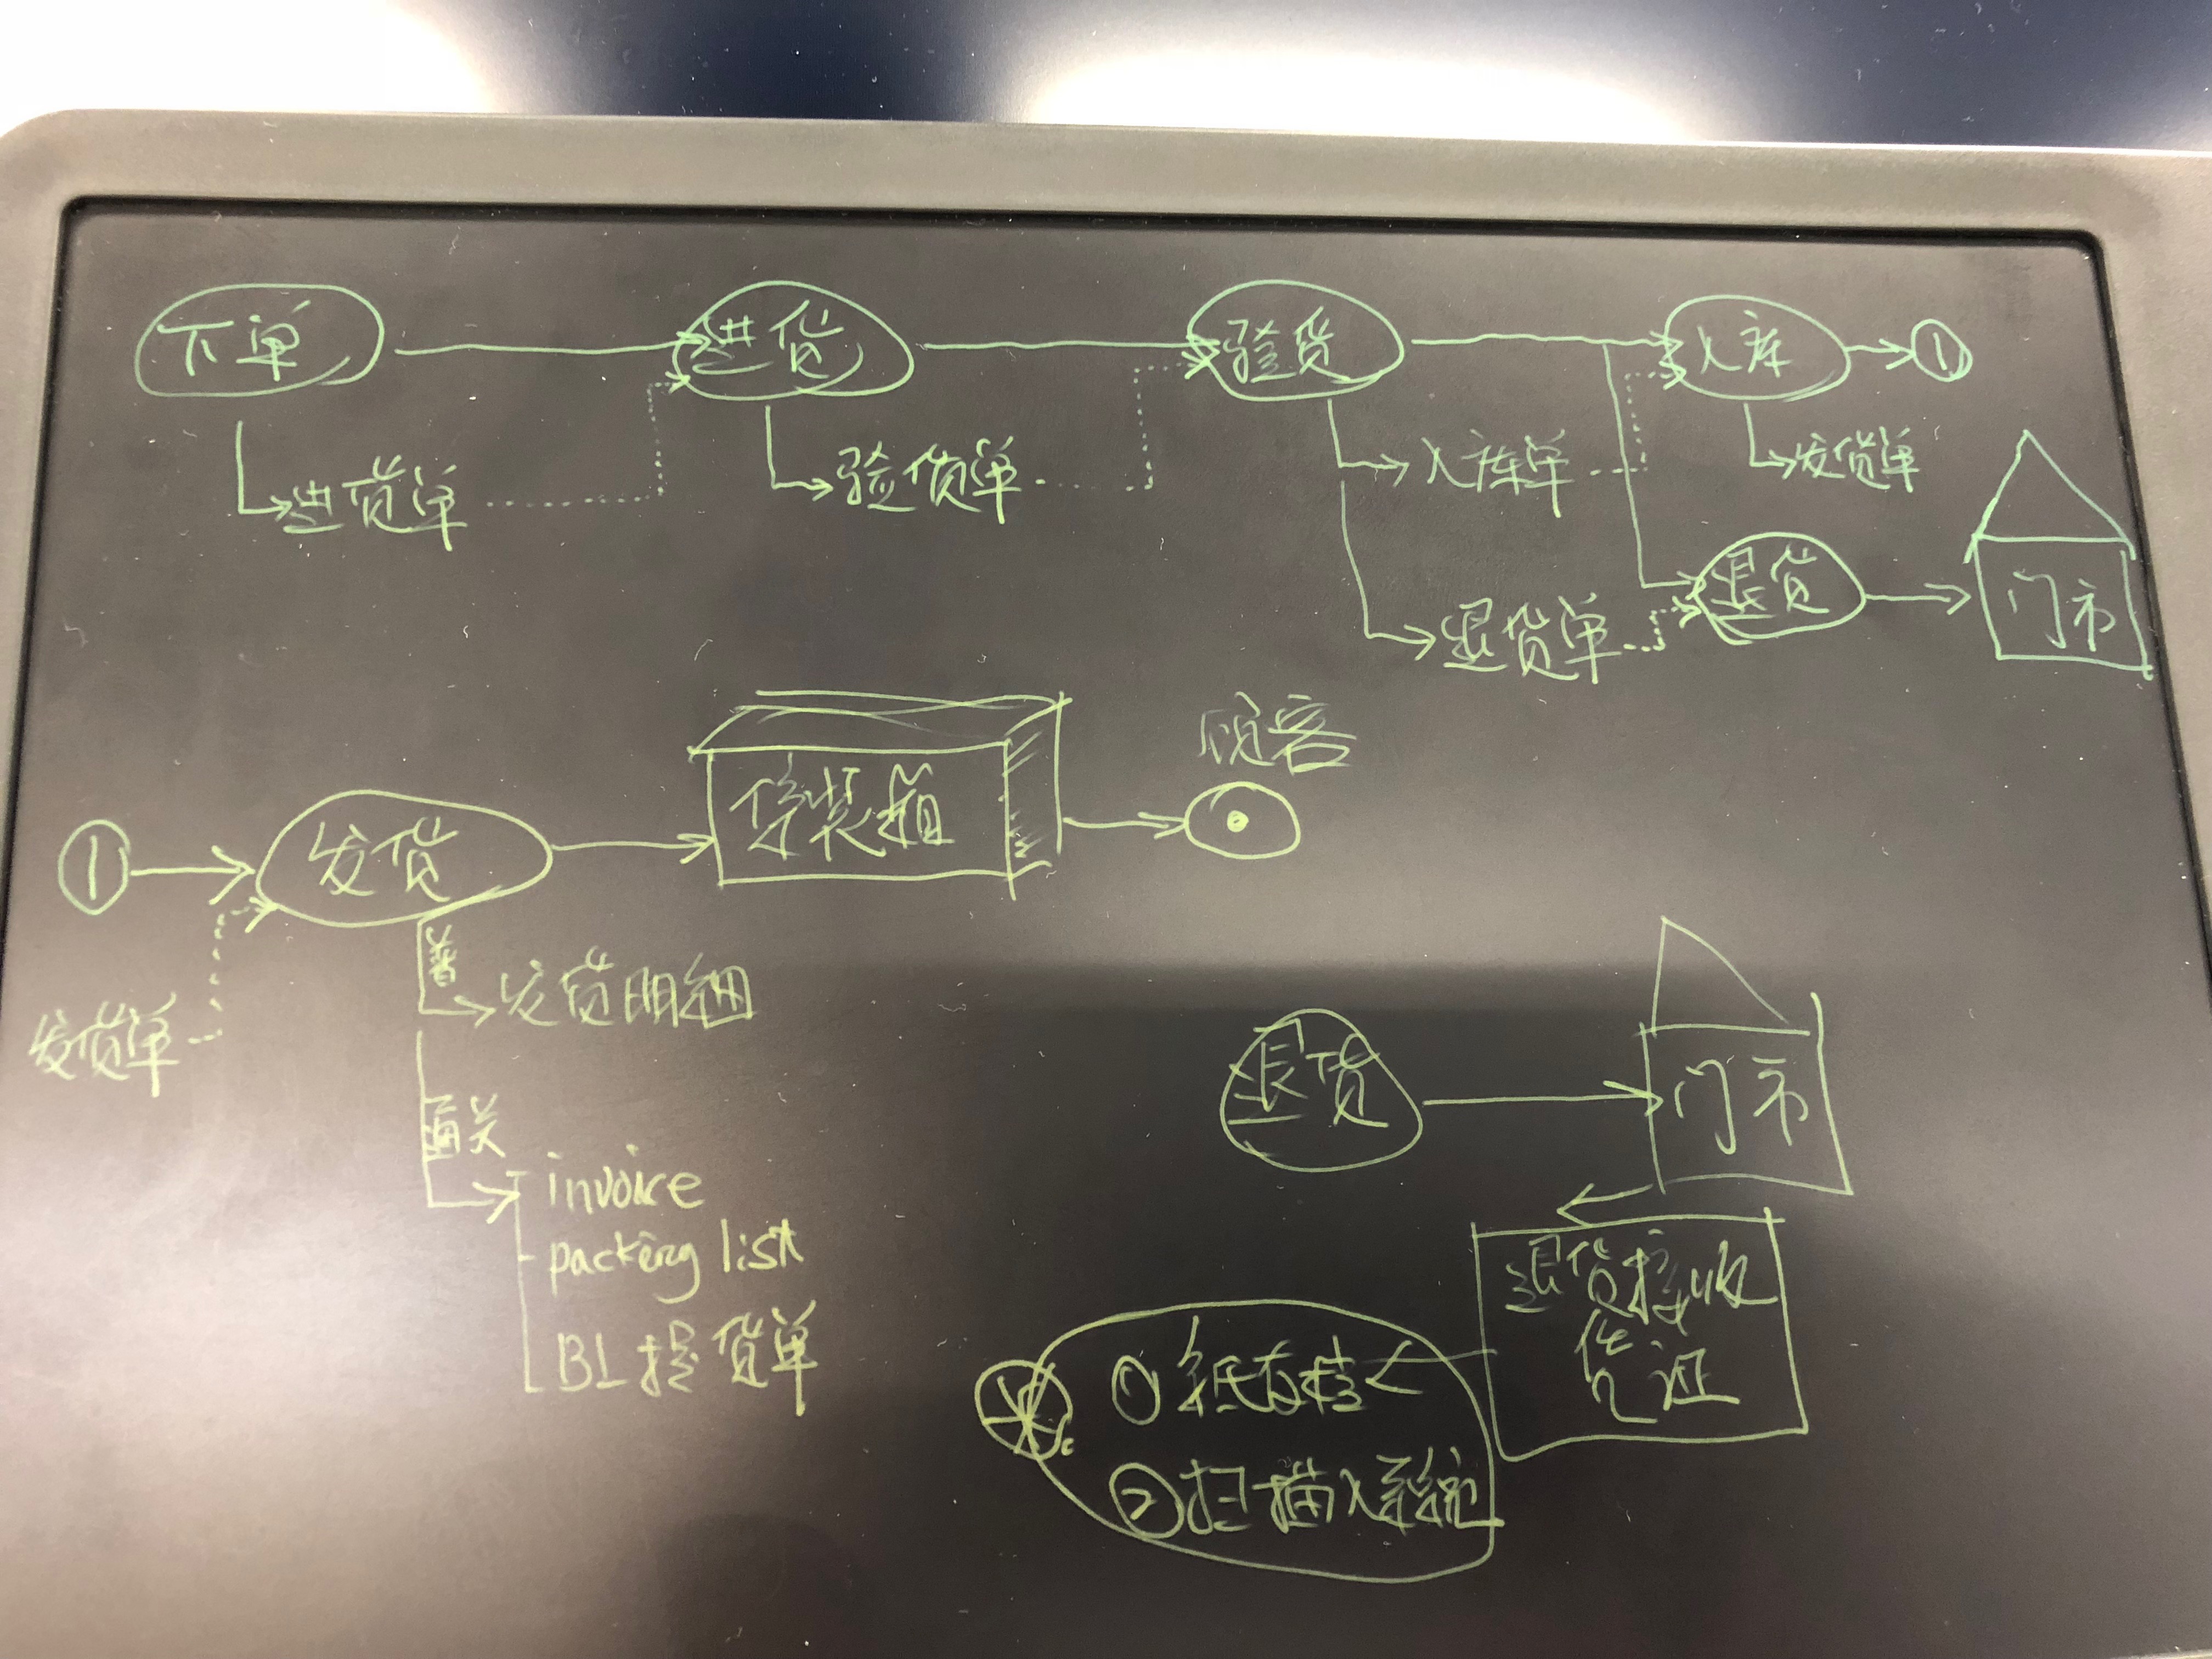 下单
进货
验货
入库
①
进货单
验货单
入库单
发货单
退货单
退货
门市
顾客
集装箱
①
发货
普
发货明细
发货单
通关
invoice
packing list
BL提货单
退货
门市
退货接收
凭证
① 纸存档
② 扫描入系统